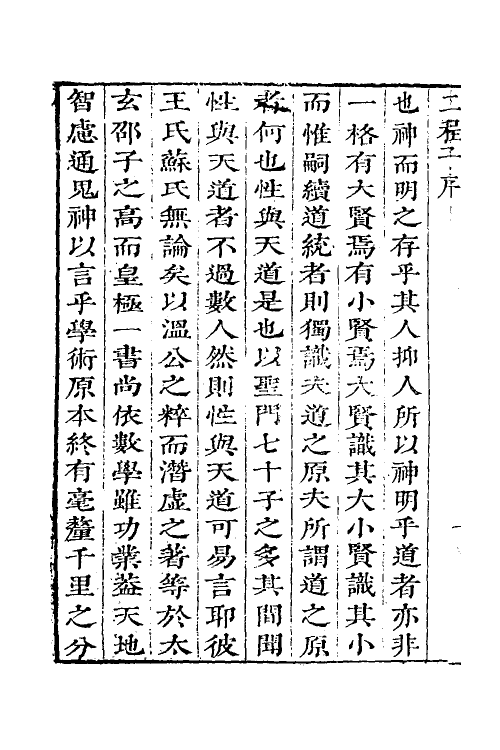 二程子序
也神而明之存乎其人抑人所以神明乎道者亦非
一格有大賢焉有小賢焉大賢識其大小賢識其小
而惟嗣續道統者則獨識夫道之原夫所謂道之原
者何也性與天道是也以聖門七十子之多其間聞
性與天道者不過數人然則性與天道可易言耶彼
王氏蘇氏無論矣以溫公之粹而潛虛之著等於太
玄邵子之高而皇極一書尚依數學雖功業葢天地
智慮通鬼神以言乎學術原本終有毫釐千里之分